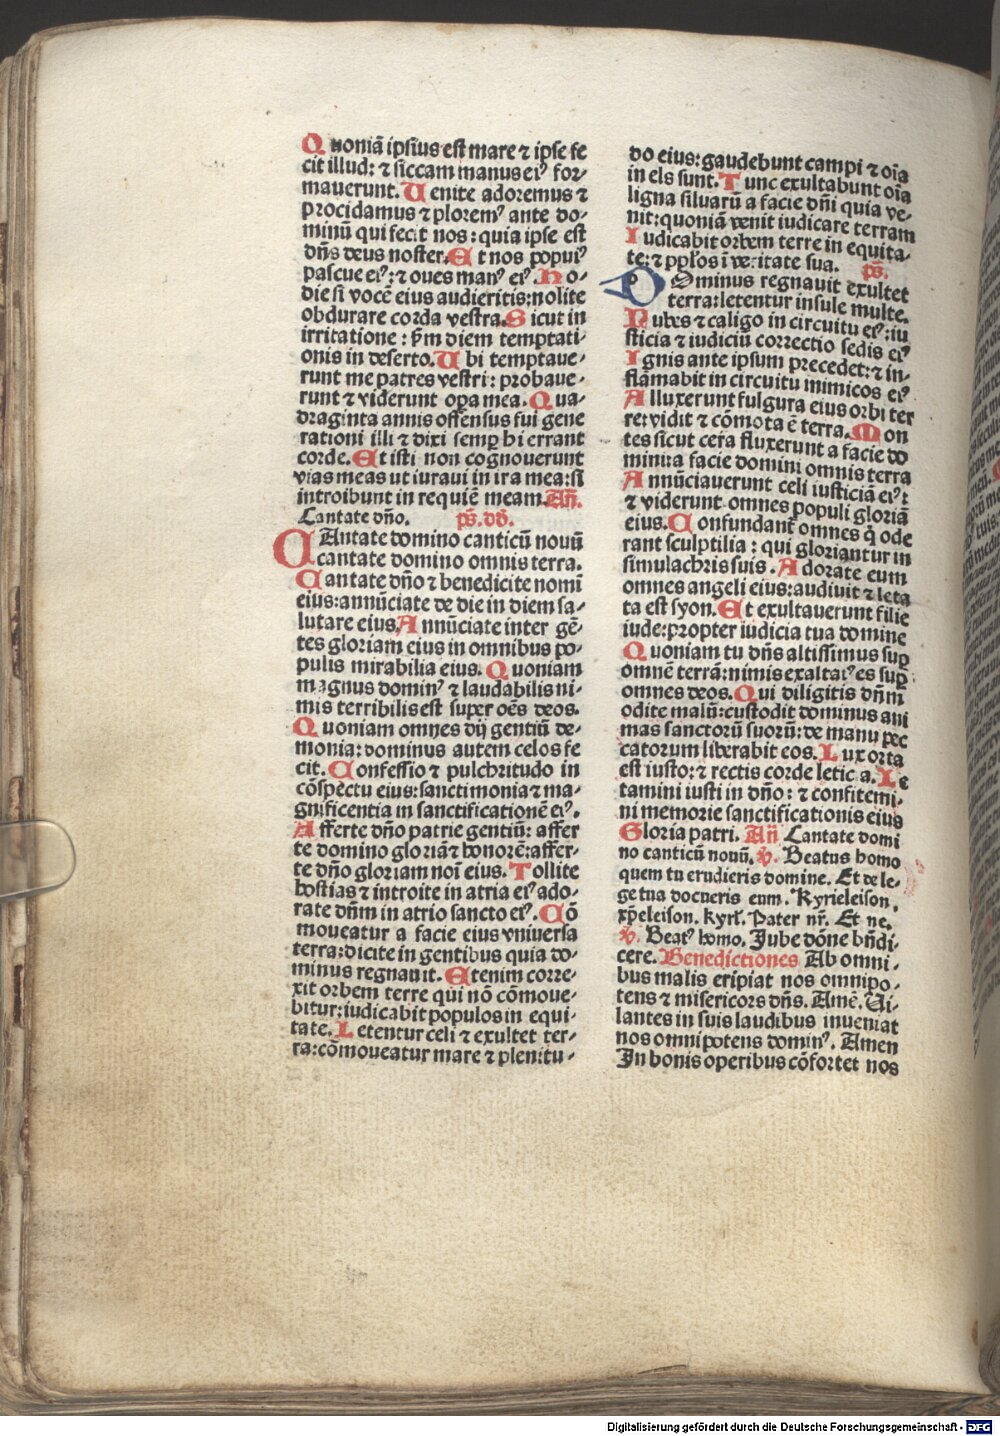 Quoniā ipsius est mare ⁊ ipse fe
cit illud: ⁊ siccam manus eiꝰ for⸗
mauerunt. Uenite adoremus ⁊
procidamus ⁊ ploremꝰ ante do⸗
minū qui fecit nos: quia ipse est
dn̄s deus noster. Et nos popuꝰ
pascue eiꝰ: ⁊ oues manꝰ eiꝰ. Ho⸗
die si vocē eius audieritis: nolite
obdurare corda vestra. Sicut in
irritatione: ẜm diem temptati⸗
onis in deserto. Ubi temptaue⸗
runt me patres vestri: probaue⸗
runt ⁊ viderunt oꝑa mea. Qua⸗
draginta annis offensus fui gene
rationi illi ⁊ dixi semꝑ hi errant
corde. Et isti non cognouerunt
vias meas ut iuraui in ira mea: si
introibunt in requiē meam. Añ.
Cantate dño. ps̄. dd̄.
CAntate domino canticū nouū
cantate domino omnis terra.
Cantate dño ⁊ benedicite nomī
eius: annūciate de die in diem sa⸗
lutare eius. Annūciate inter gē⸗
tes gloriam eius in omnibus po⸗
pulis mirabilia eius. Quoniam
magnus dominꝰ ⁊ laudabilis ni⸗
mis terribilis est super oēs deos.
Quoniam omnes dij gentiū de⸗
monia: dominus autem celos fe
cit. Confessio ⁊ pulchritudo in
cōspectu eius: sanctimonia ⁊ ma⸗
gnificentia in sanctificationē eiꝰ.
Afferte dño patrie gentiū: affer
te domino gloriā ⁊ honorē: affer⸗
te dño gloriam noī eius. Tollite
hostias ⁊ introite in atria eiꝰ ado⸗
rate dn̄m in atrio sancto eiꝰ. Cō
moueatur a facie eius vniuersa
terra: dicite in gentibus quia do⸗
minus regnauit. Etenim corre⸗
xit orbem terre qui nō cōmoue⸗
bitur: iudicabit populos in equi⸗
tate. Letentur celi ⁊ exultet ter⸗
ra: cōmoueatur mare ⁊ plenitu⸗
do eius: gaudebunt campi ⁊ oīa
in eis sunt. Tunc exultabunt oīa
ligna siluarū a facie dñi quia ve⸗
nit: quoniā venit iudicare terram
Iudicabit orbem terre in equita⸗
te: ⁊ pp̄los ī veritate sua. ps̄.
DOminus regnauit exultet
terra: letentur insule multe.
Nubes ⁊ caligo in circuitu eiꝰ: iu
sticia ⁊ iudiciū correctio sedis eiꝰ
Ignis ante ipsum precedet: ⁊ in⸗
flāmabit in circuitu inimicos eiꝰ
Alluxerunt fulgura eius orbi ter
re: vidit ⁊ cōmota ē terra. Mon
tes sicut cera fluxerunt a facie do
mini: a facie domini omnis terra
Annūciauerunt celi iusticiā eiꝰ:
⁊ viderunt omnes populi gloriā
eius. Confundant̄ omnes q̇ ode
rant sculptilia: qui gloriantur in
simulachris suis. Adorate eum
omnes angeli eius: audiuit ⁊ leta
ta est syon. Et exultauerunt filie
iude: propter iudicia tua domine
Quoniam tu dn̄s altissimus suꝑ
omnē terrā: nimis exaltaꝰ es suꝑ
omnes deos. Qui diligitis dn̄m
odite malū: custodit dominus ani
mas sanctorū suorū: de manu pec
catorum liberabit eos. Lux orta
est iusto: ⁊ rectis corde leticia. Le
tamini iusti in dño: ⁊ confitemi⸗
ni memorie sanctificationis eius
Gloria patri. Añ Cantate domi
no canticū nouū. ꝟ. Beatus homo
quem tu erudieris domine. Et de le⸗
ge tua docueris eum. Kyrieleison.
xp̄eleison. kyrl̄. Pater nr̄. Et ne.
ꝟ. Beatꝰ homo. Jube dōne bn̄di⸗
cere. Benedictiones Ab omni⸗
bus malis eripiat nos omnipo⸗
tens ⁊ misericors dn̄s. Amē. Ui⸗
lantes in suis laudibus inueniat
nos omnipotens dominꝰ. Amen
In bonis operibus cōfortet nos
Digitalisierung gefördert durch die Deutsche Forschungsgemeinschaft - DFG